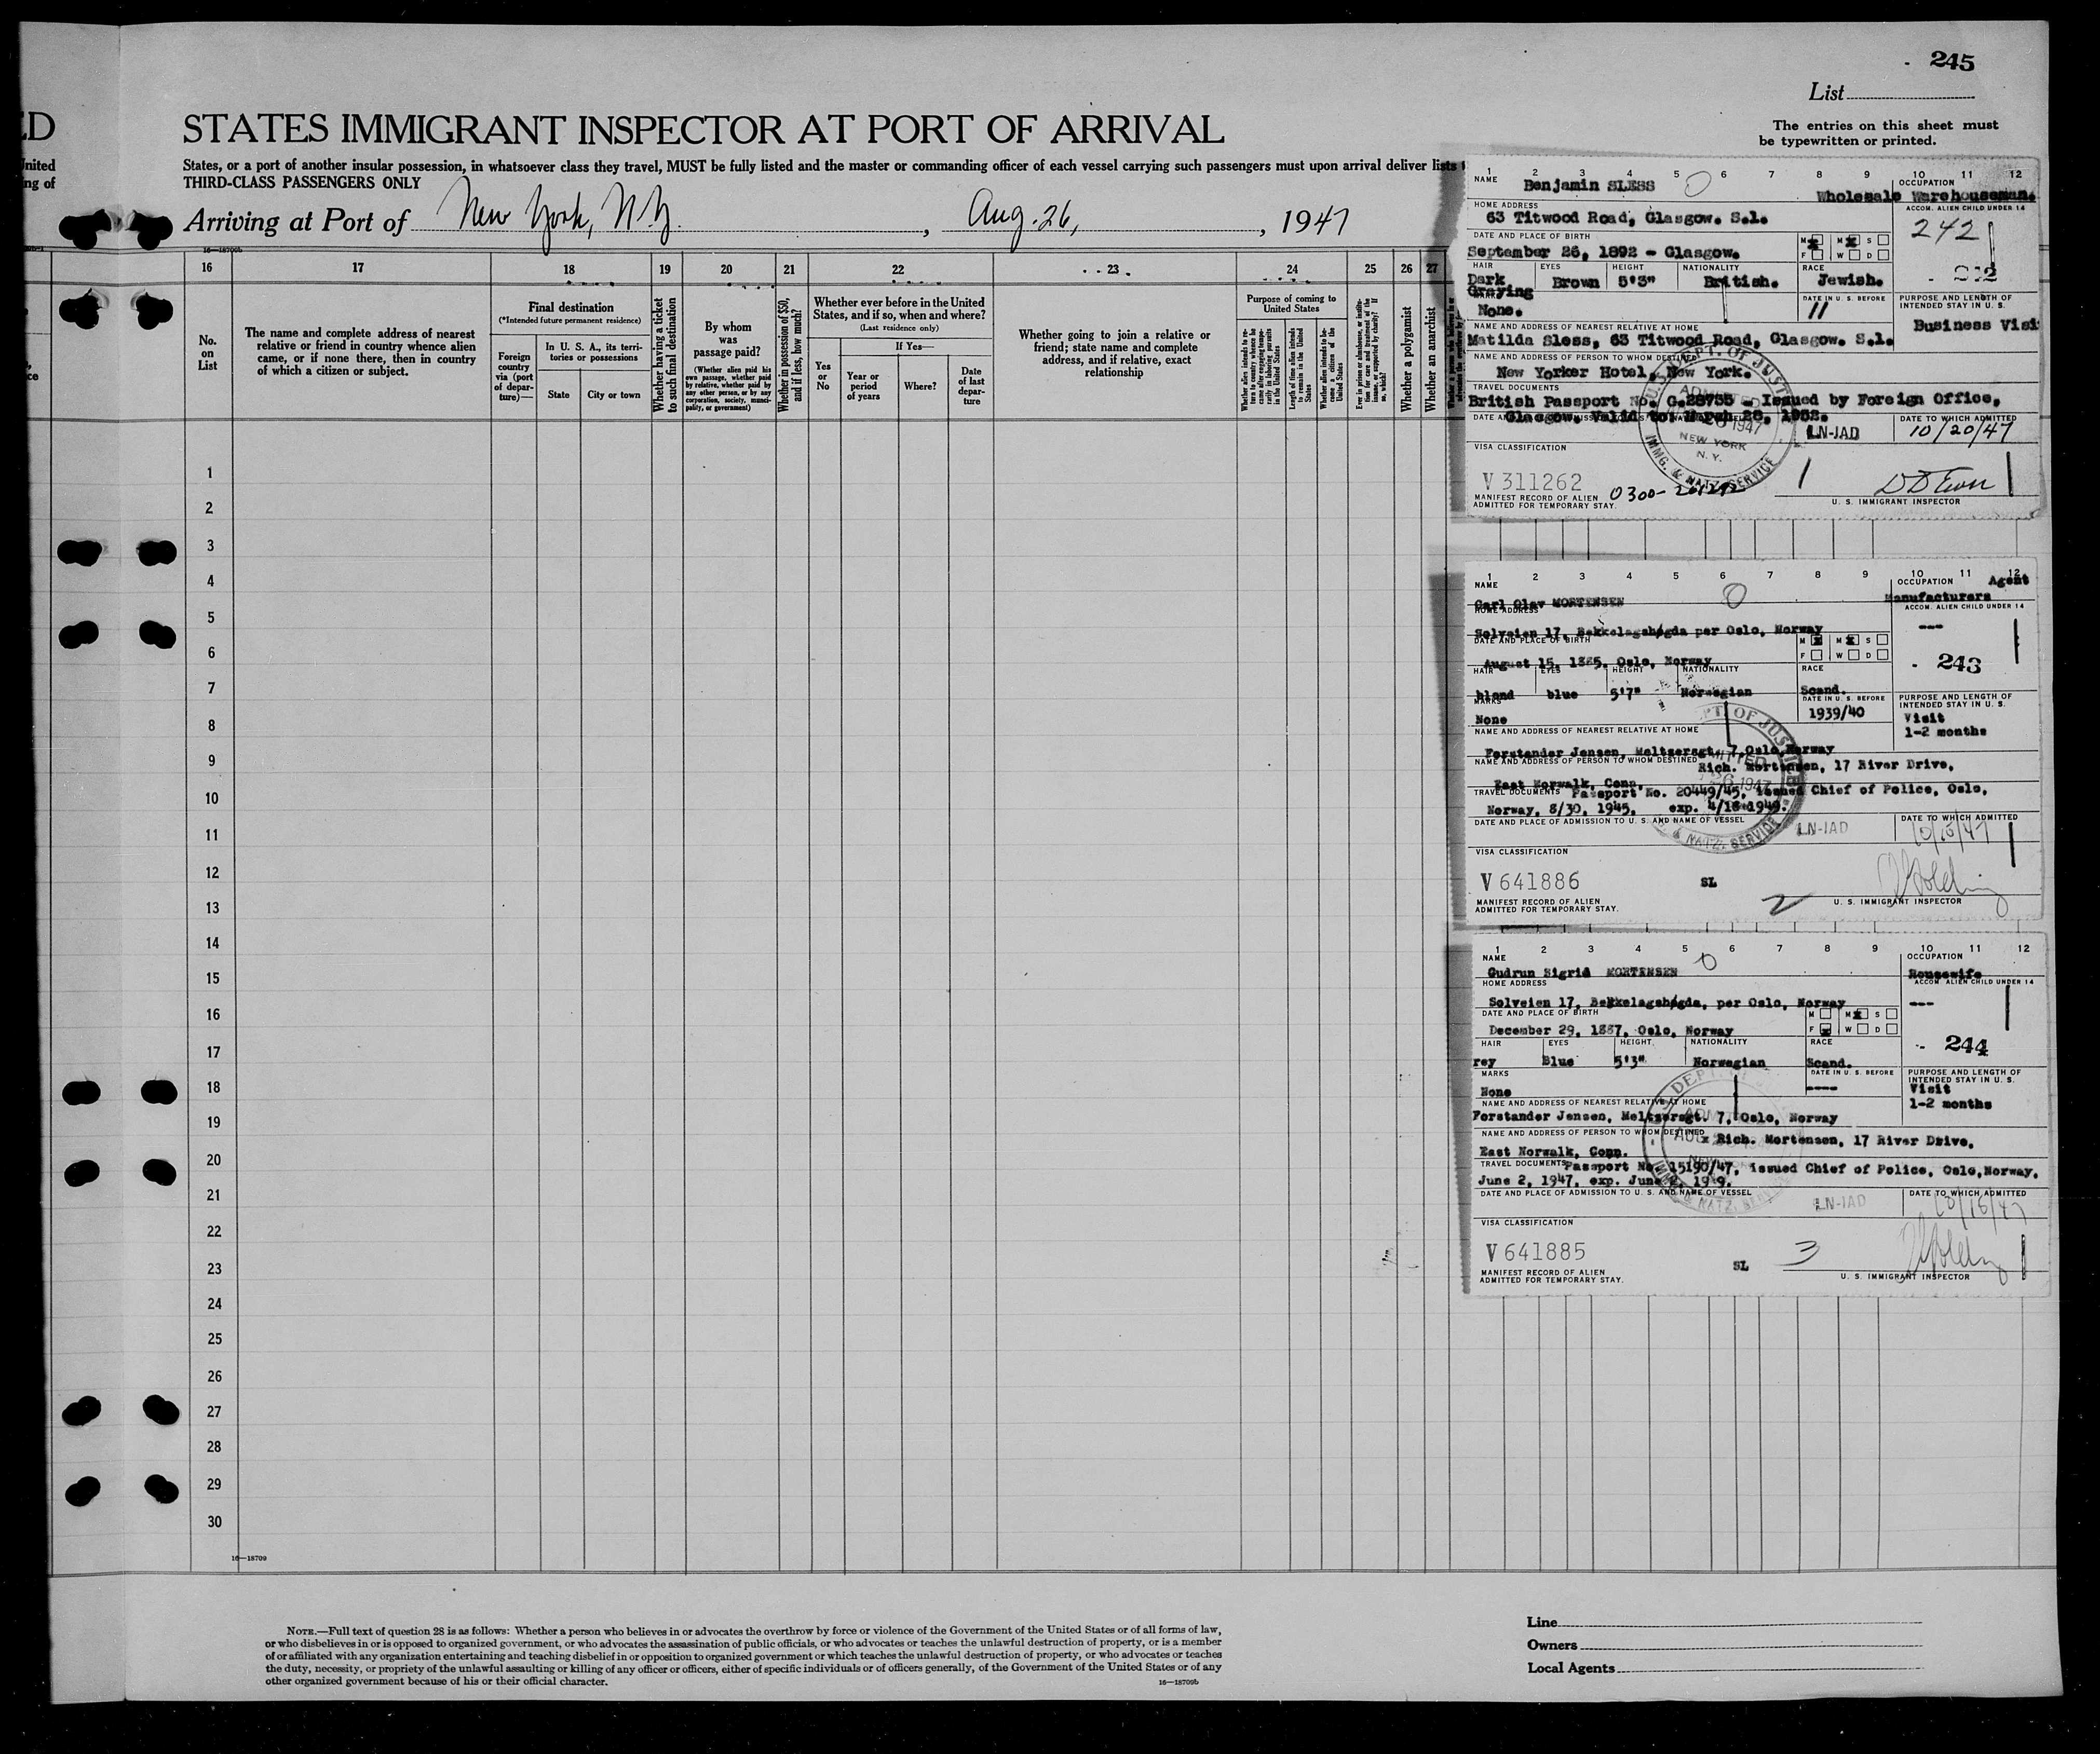 245
List
The entries on this sheet must
be typewritten or printed.
ED
STATES IMMIGRANT INSPECTOR AT PORT OF ARRIVAL
United
States, or a port of another insular possession, in whatsoever class they travel, MUST be fully listed and the master or commanding officer of each vessel carrying such passengers must upon arrival deliver lists
ng of
THIRD-CLASS PASSENGERS ONLY
Arriving at Port of New York, N.Y. , Aug. 26, , 1947
16—18709b
16 17 18 19 20 21 22 23 24 25 26 27
No. on List
The name and complete address of nearest
relative or friend in country whence alien
came, or if none there, then in country
of which a citizen or subject.
Final destination
(*Intended future permanent residence)
Foreign country via (port of depar-ture)—
In U. S. A., its terri-
tories or possessions
State
City or town
Whether having a ticket to such final destination
By whom
was
passage paid?
(Whether alien paid his
own passage, whether paid
by relative, whether paid by
any other person, or by any
corporation, society, munici-
pality, or government)
Whether in possession of $50, and if less, how much?
Whether ever before in the United
States, and if so, when and where?
(Last residence only)
Yes or No
If Yes—
Year or period of years
Where?
Date of last depar-ture
Whether going to join a relative or
friend; state name and complete
address, and if relative, exact
relationship
Purpose of coming to
United States
Length of time alien intends to remain in the United States
Whether alien intends to be-come a citizen of the United States
Whether a polygamist
Whether an anarchist
1
2
3
4
5
6
7
8
9
10
11
12
13
14
15
16
17
18
19
20
21
22
23
24
25
26
27
28
29
30
16—18709
1 2 3 4 5 6 7 8 9 10 11 12
NAME Benjamin SLESS 0
OCCUPATION Wholesale Warehouseman.
HOME ADDRESS
63 Titwood Road, Glasgow. S.1.
ACCOM. ALIEN CHILD UNDER 14
242
DATE AND PLACE OF BIRTH
September 26, 1892 - Glasgow.
M M S
F W D
HAIR EYES HEIGHT NATIONALITY RACE
Dark Graying Brown 5'3" British. Jewish.
None.
DATE IN U. S. BEFORE
11
PURPOSE AND LENGTH OF
INTENDED STAY IN U. S.
Business Visi
NAME AND ADDRESS OF NEAREST RELATIVE AT HOME
Matilda Sless, 63 Titwood Road, Glasgow. S.1.
NAME AND ADDRESS OF PERSON TO WHOM DESTINED
New Yorker Hotel, New York.
TRAVEL DOCUMENTS
British Passport No. C.28755 - Issued by Foreign Office,
Glasgow. Valid to: March 28, 1952.
LN-IAD
DATE TO WHICH ADMITTED
10/20/47
U. S. DEPT. OF JUSTICE
ADMITTED
26 1947
NEW YORK
N. Y.
IMMG. & NATZ. SERVICE
VISA CLASSIFICATION
V 311262
MANIFEST RECORD OF ALIEN
ADMITTED FOR TEMPORARY STAY.
0300-
U. S. IMMIGRANT INSPECTOR
1 2 3 4 5 6 7 8 9 10 11 12
NAME
Carl Olav MORTENSEN 0
OCCUPATION Agent
Manufacturers
HOME ADDRESS
Solveien 17, Bekkelagshøgda per Oslo, Norway
ACCOM. ALIEN CHILD UNDER 14
---
DATE AND PLACE OF BIRTH
August 15, 1885, Oslo, Norway
M M S
F W D
243
HAIR EYES HEIGHT NATIONALITY RACE
blond blue 5'7" Norwegian Scand.
MARKS
None
DATE IN U. S. BEFORE
1939/40
PURPOSE AND LENGTH OF
INTENDED STAY IN U. S.
Visit
1-2 months
NAME AND ADDRESS OF NEAREST RELATIVE AT HOME
Forstander Jensen, Meltzersgt. 7, Oslo, Norway
NAME AND ADDRESS OF PERSON TO WHOM DESTINED
Rich. Mortensen, 17 River Drive,
East Norwalk, Conn.
TRAVEL DOCUMENTS Passport No. 20449/45, issued Chief of Police, Oslo,
Norway, 8/30, 1945, exp. 4/18 1949.
DATE AND PLACE OF ADMISSION TO U. S. AND NAME OF VESSEL
LN-IAD
DATE TO WHICH ADMITTED
10/15/47
VISA CLASSIFICATION
V 641886
SL
2
MANIFEST RECORD OF ALIEN
ADMITTED FOR TEMPORARY STAY.
U. S. IMMIGRANT INSPECTOR
1 2 3 4 5 6 7 8 9 10 11 12
NAME
Gudrun Sigrid MORTENSEN 0
OCCUPATION
Housewife
HOME ADDRESS
Solveien 17, Bekkelagshøgda, per Oslo, Norway
ACCOM. ALIEN CHILD UNDER 14
---
DATE AND PLACE OF BIRTH
December 29, 1887, Oslo, Norway
M M S
F W D
244
HAIR EYES HEIGHT NATIONALITY RACE
rey Blue 5'3" Norwegian Scand.
MARKS
None
DATE IN U. S. BEFORE
----
PURPOSE AND LENGTH OF
INTENDED STAY IN U. S.
Visit
1-2 months
NAME AND ADDRESS OF NEAREST RELATIVE AT HOME
Forstander Jensen, Meltzersgt. 7, Oslo, Norway
NAME AND ADDRESS OF PERSON TO WHOM DESTINED
Rich. Mortensen, 17 River Drive,
East Norwalk, Conn.
TRAVEL DOCUMENTS Passport No. 15190/47, issued Chief of Police, Oslo, Norway,
June 2, 1947, exp. June 2, 1949.
DATE AND PLACE OF ADMISSION TO U. S. AND NAME OF VESSEL
LN-IAD
DATE TO WHICH ADMITTED
10/15/47
VISA CLASSIFICATION
V 641885
SL
3
MANIFEST RECORD OF ALIEN
ADMITTED FOR TEMPORARY STAY.
U. S. IMMIGRANT INSPECTOR
NOTE.—Full text of question 28 is as follows: Whether a person who believes in or advocates the overthrow by force or violence of the Government of the United States or of all forms of law,
or who disbelieves in or is opposed to organized government, or who advocates the assassination of public officials, or who advocates or teaches the unlawful destruction of property, or is a member
of or affiliated with any organization entertaining and teaching disbelief in or opposition to organized government or which teaches the unlawful destruction of property, or who advocates or teaches
the duty, necessity, or propriety of the unlawful assaulting or killing of any officer or officers, either of specific individuals or of officers generally, of the Government of the United States or of any
other organized government because of his or their official character.
16—18709b
Line
Owners
Local Agents